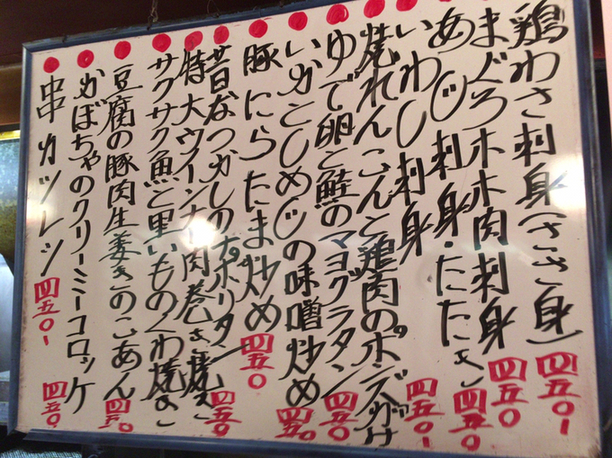 鶏わさ刺身(ささ身) 四五〇-
まぐろホホ肉刺身 四五〇
あじ刺身・たたき 四五〇
いわし刺身 四五〇-
焼れんこんと鶏肉のポンズがけ
ゆで卵と鮭のマヨグラタン 四五〇
いかとしめじの味噌炒め 四五〇
豚にらたま炒め 四五〇
昔なつかしのナポリタン 四五〇
特大ウインナー肉巻き焼き
サクサク魚と里いものくわ焼き
豆腐の豚肉生姜きのこあん 四五〇
かぼちゃのクリーミーコロッケ 四五〇
串カツレツ 四五〇-